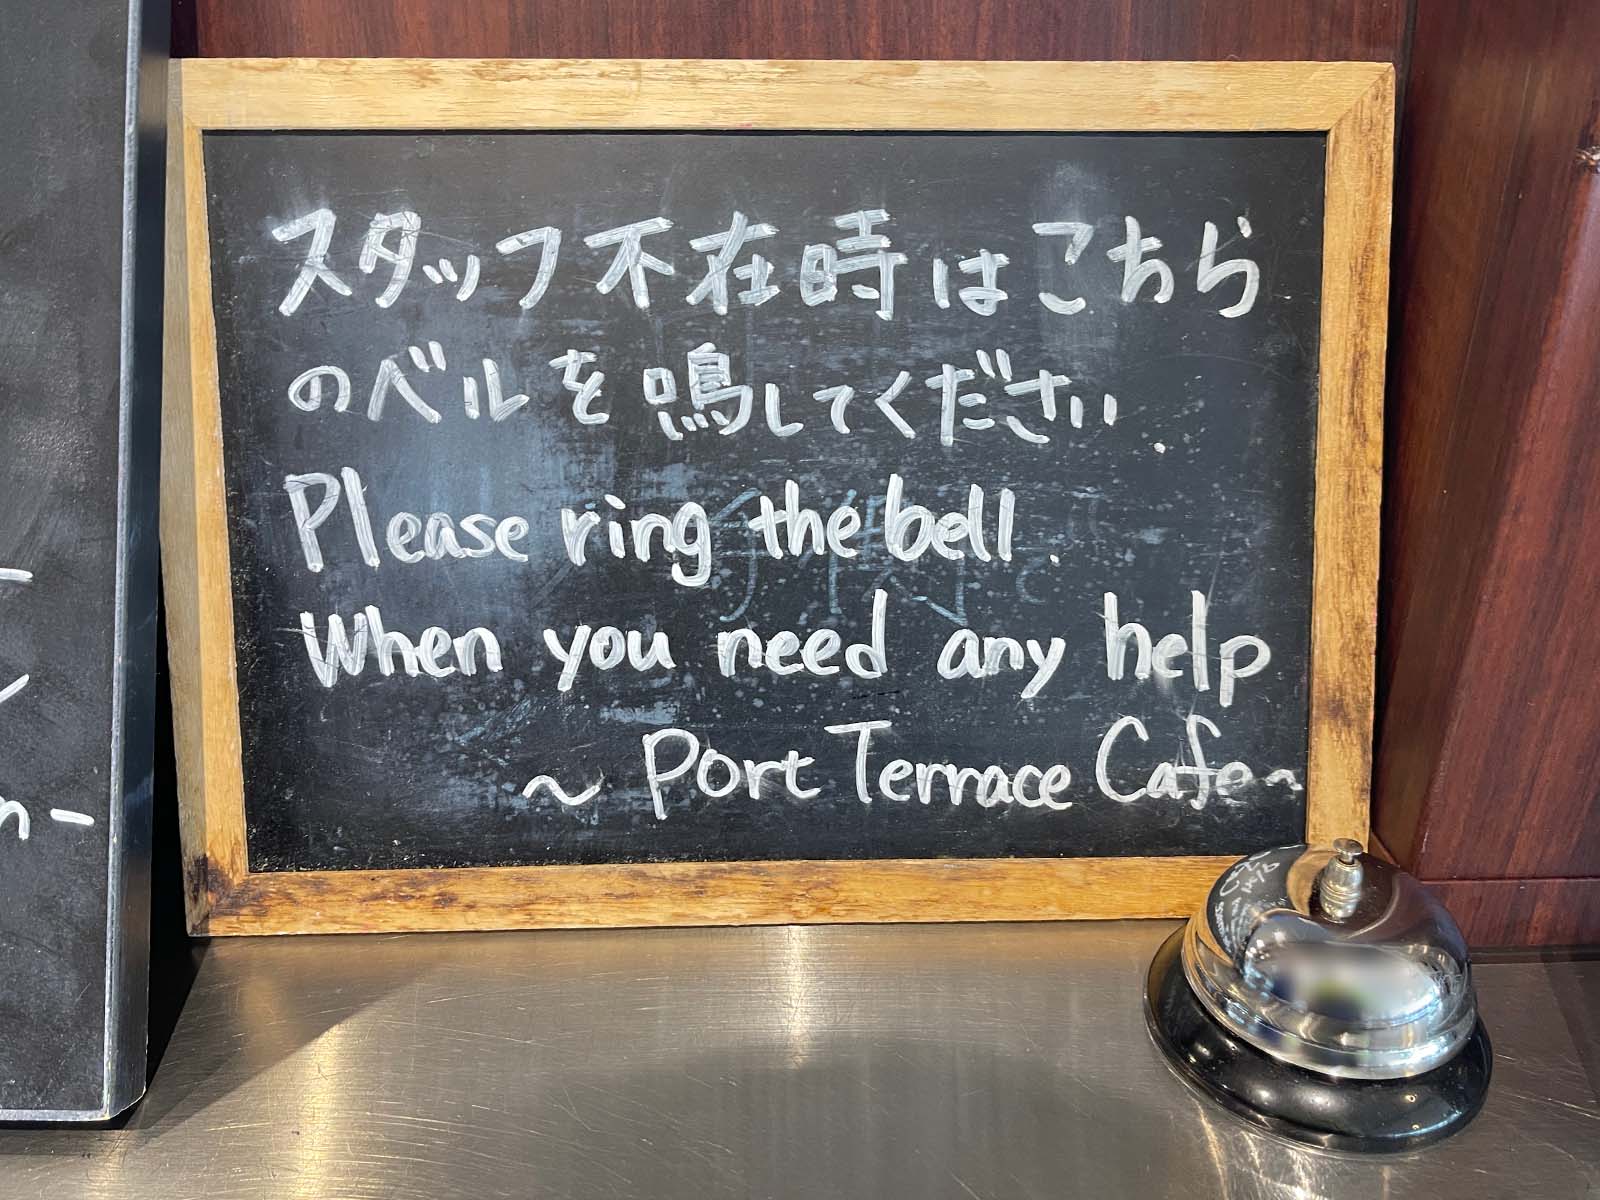 スタッフ不在時はこちら
のベルを鳴らしてください.
Please ring the bell.
When you need any help
~ Port Terrace Cafe~